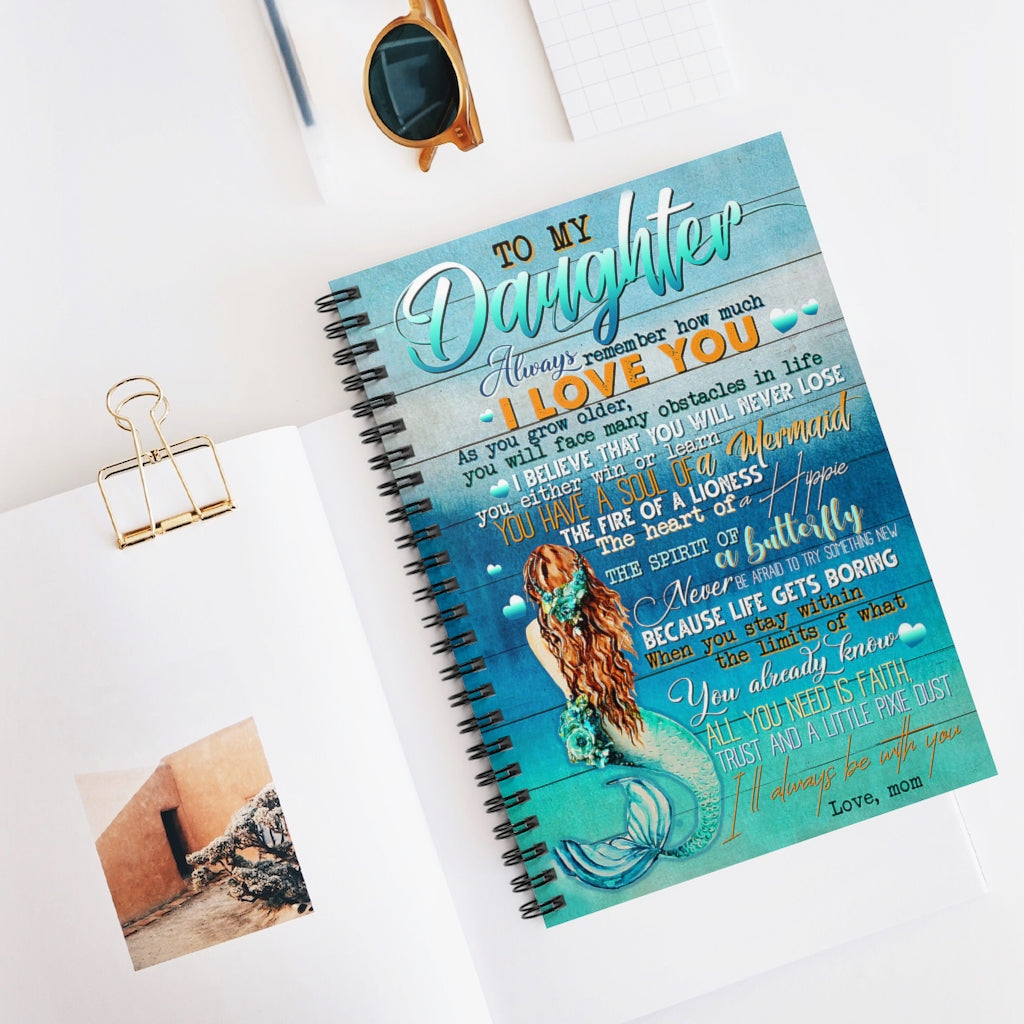 TO MY
Daughter
Always remember how much
I LOVE YOU
As you grow older,
you will face many obstacles in life
I BELIEVE THAT YOU WILL NEVER LOSE
you either win or learn
YOU HAVE A SOUL OF a Mermaid
THE FIRE OF A LIONESS
The heart of a Hippie
THE SPIRIT OF a butterfly
Never BE AFRAID TO TRY SOMETHING NEW
BECAUSE LIFE GETS BORING
When you stay within
the limits of what
You already know
ALL YOU NEED IS FAITH,
TRUST AND A LITTLE PIXIE DUST
I'll always be with you
Love, mom